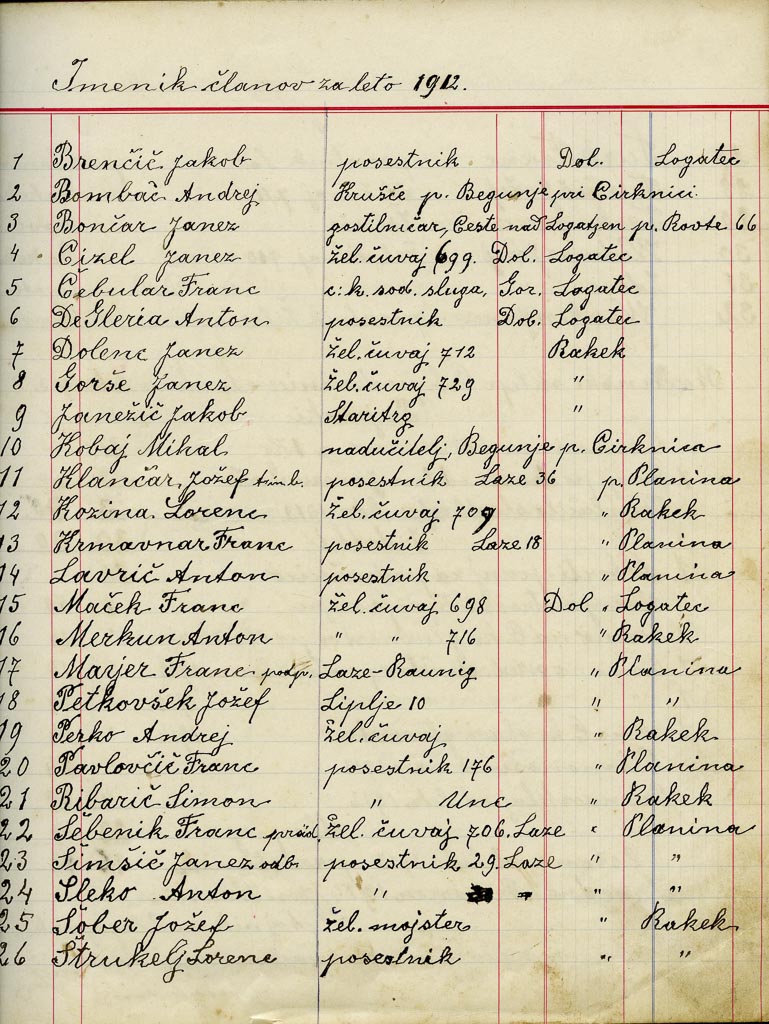 Imenik članov za leto 1912.
1 Brenčič Jakob posestnik Dol. Logatec
2 Bombač Andrej Krušče p. Begunje pri Cirknici.
3 Bončar Janez gostilničar, Ceste nad Logatjen p. Rovte 66
4 Cizel Janez žel. čuvaj 699. Dol. Logatec
5 Čebular Franc c: k. sod. sluga, Gor. Logatec
6 DeGleria Anton posestnik Dol. Logatec
7 Dolenc Janez žel. čuvaj 712 Rakek
8 Gorše Janez žel. čuvaj 729 "
9 Janežič Jakob Staritrg "
10 Kobaj Mihal nadučitelj, Begunje p. Cirknica
11 Klančar, Jožef posestnik Laze 36 p. Planina
12 Kozina. Lorenc žel. čuvaj 709 " Rakek
13 Krmavnar Franc posestnik Laze 18 " Planina
14 Lavrič Anton posestnik " Planina
15 Maček Franc žel. čuvaj 698 Dol " Logatec
16 Merkun Anton " " 716 " Rakek
17 Mayjer Franc podp. Laze-Raunig " Planina
18 Petkovšek Jožef Liplje 10 " "
19 Perko Andrej žel. čuvaj " Rakek
20 Pavlovčič Franc posestnik 176 " Planina
21 Ribarič Simon " Unc " Rakek
22 Šebenik Franc žel. čuvaj 706. Laze " Planina
23 Šimšič Janez odb. posestnik 29. Laze " "
24 Sleko Anton " " "
25 Šober Jožef žel. mojster " Rakek
26 Štrukelj Lorenc posestnik " "